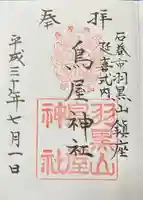 奉拝
石巻市羽黒山鎮座
延喜式内
鳥屋神社
羽黒山
鳥屋
神社
平成三十年七月一日